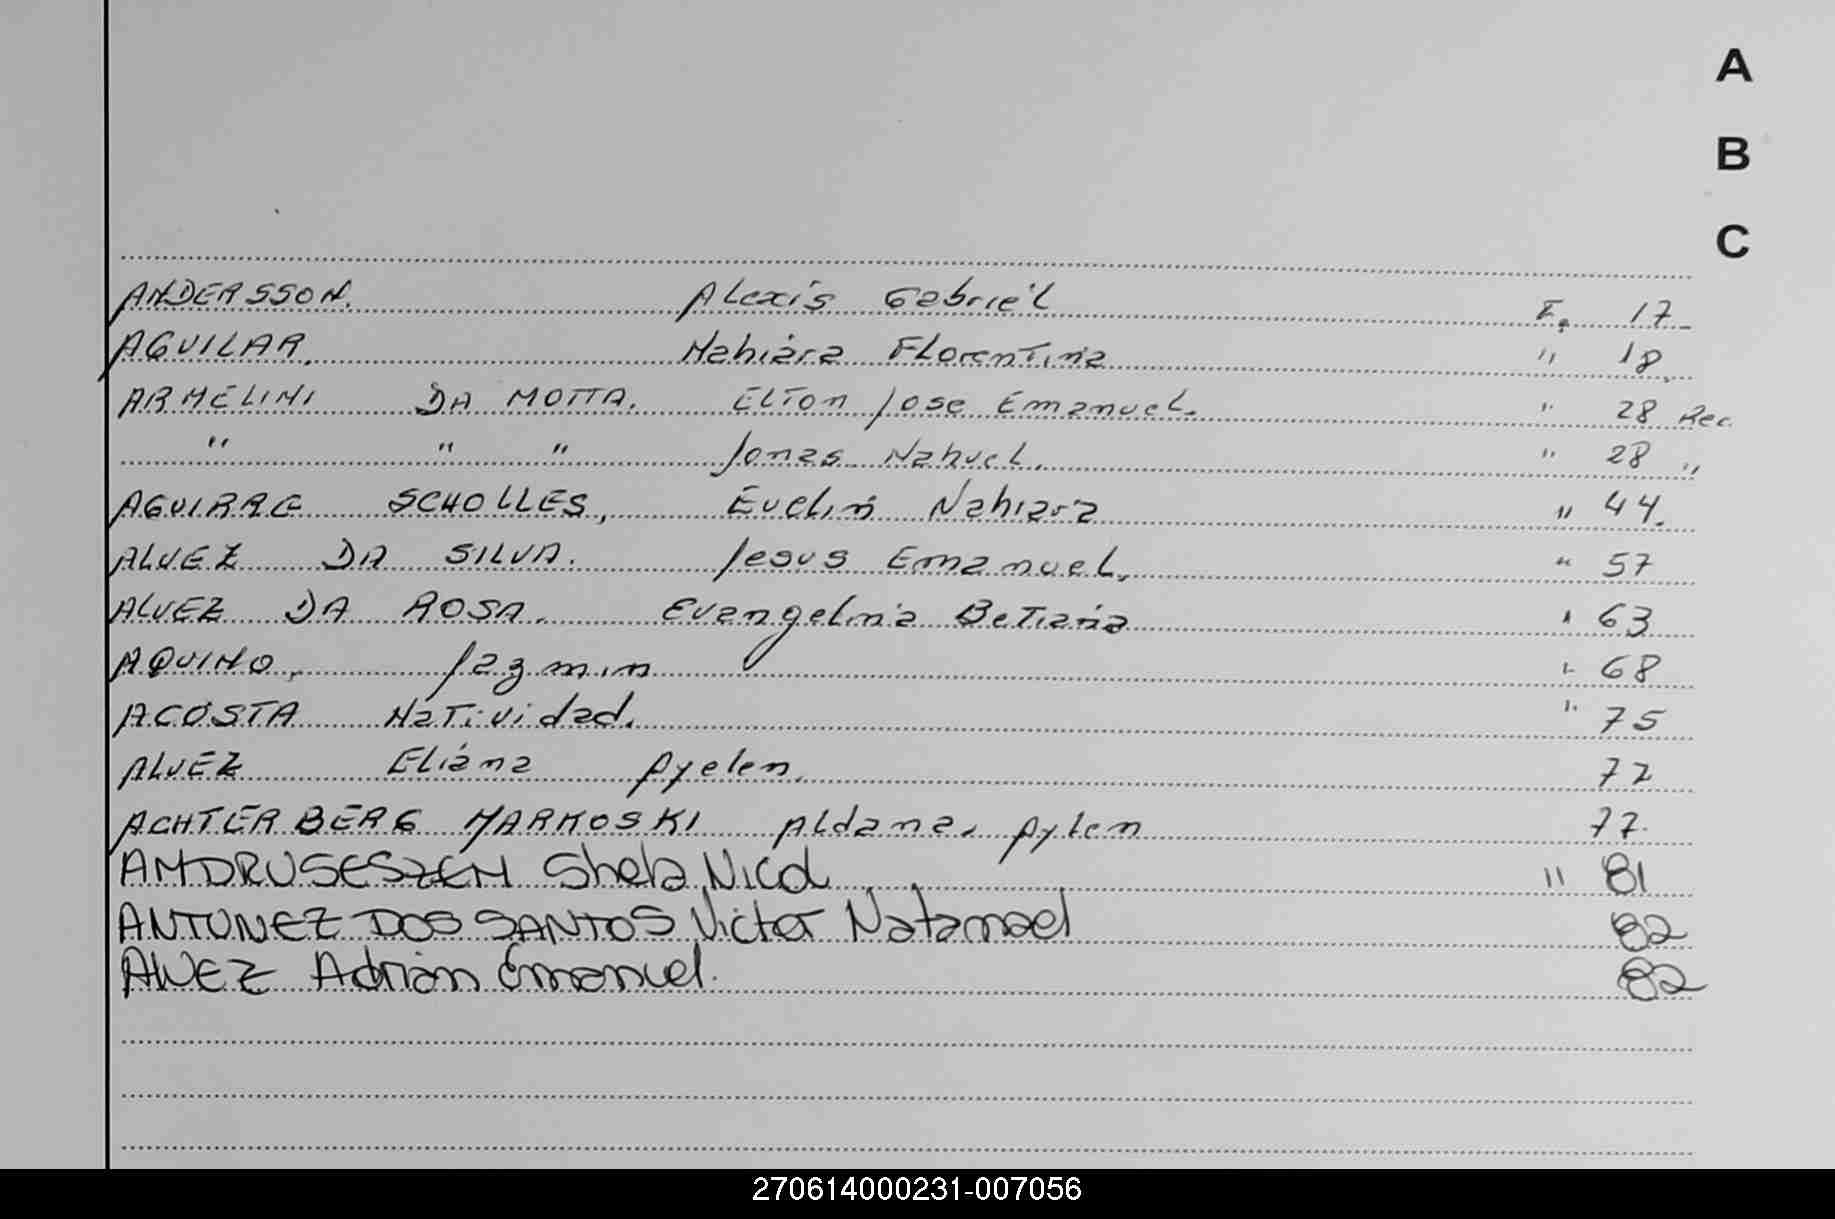 A
B
C
ANDERSSON. Alexis Gabriel F. 17
AGUILAR. Nahiara Florentina " 18
ARMELINI DA MOTTA. Elton Jose Emanuel. " 28 Rec.
" " " Jonas Nahuel. " 28 "
AGUIRRE SCHOLLES, Evelin Nahiara " 44.
ALVEZ DA SILVA. Jesus Emanuel. " 57
ALVEZ DA ROSA. Evangelina Betiana " 63
AQUINO, Jazmin " 68
ACOSTA Natividad. " 75
ALVEZ Eliana Ayelen. 77
ACHTERBERG MARKOSKI Aldana Aylen 77.
Nicol " 81
ANTUNEZ DOS SANTOS Victor Natanael 82
ALVEZ Adrián Emanuel. 82
270614000231-007056